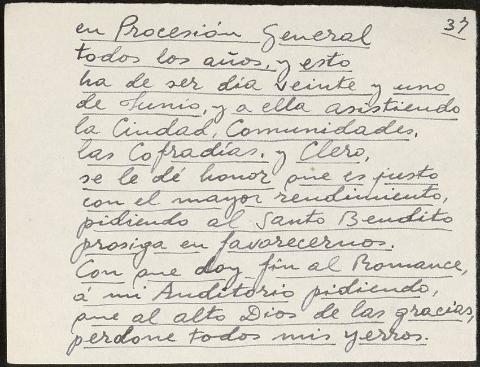 37
en Procesión General
todos los años, y esto
ha de ser día veinte y uno
de Junio, y a ella asistiendo
la Ciudad, Comunidades,
las Cofradías, y Clero,
se le dé honor que es justo
con el mayor rendimiento,
pidiendo al Santo Bendito
prosiga en favorecernos.
Con que doy fin al Romance,
á mi Auditorio pidiendo,
que al alto Dios de las gracias,
perdone todos mis yerros.